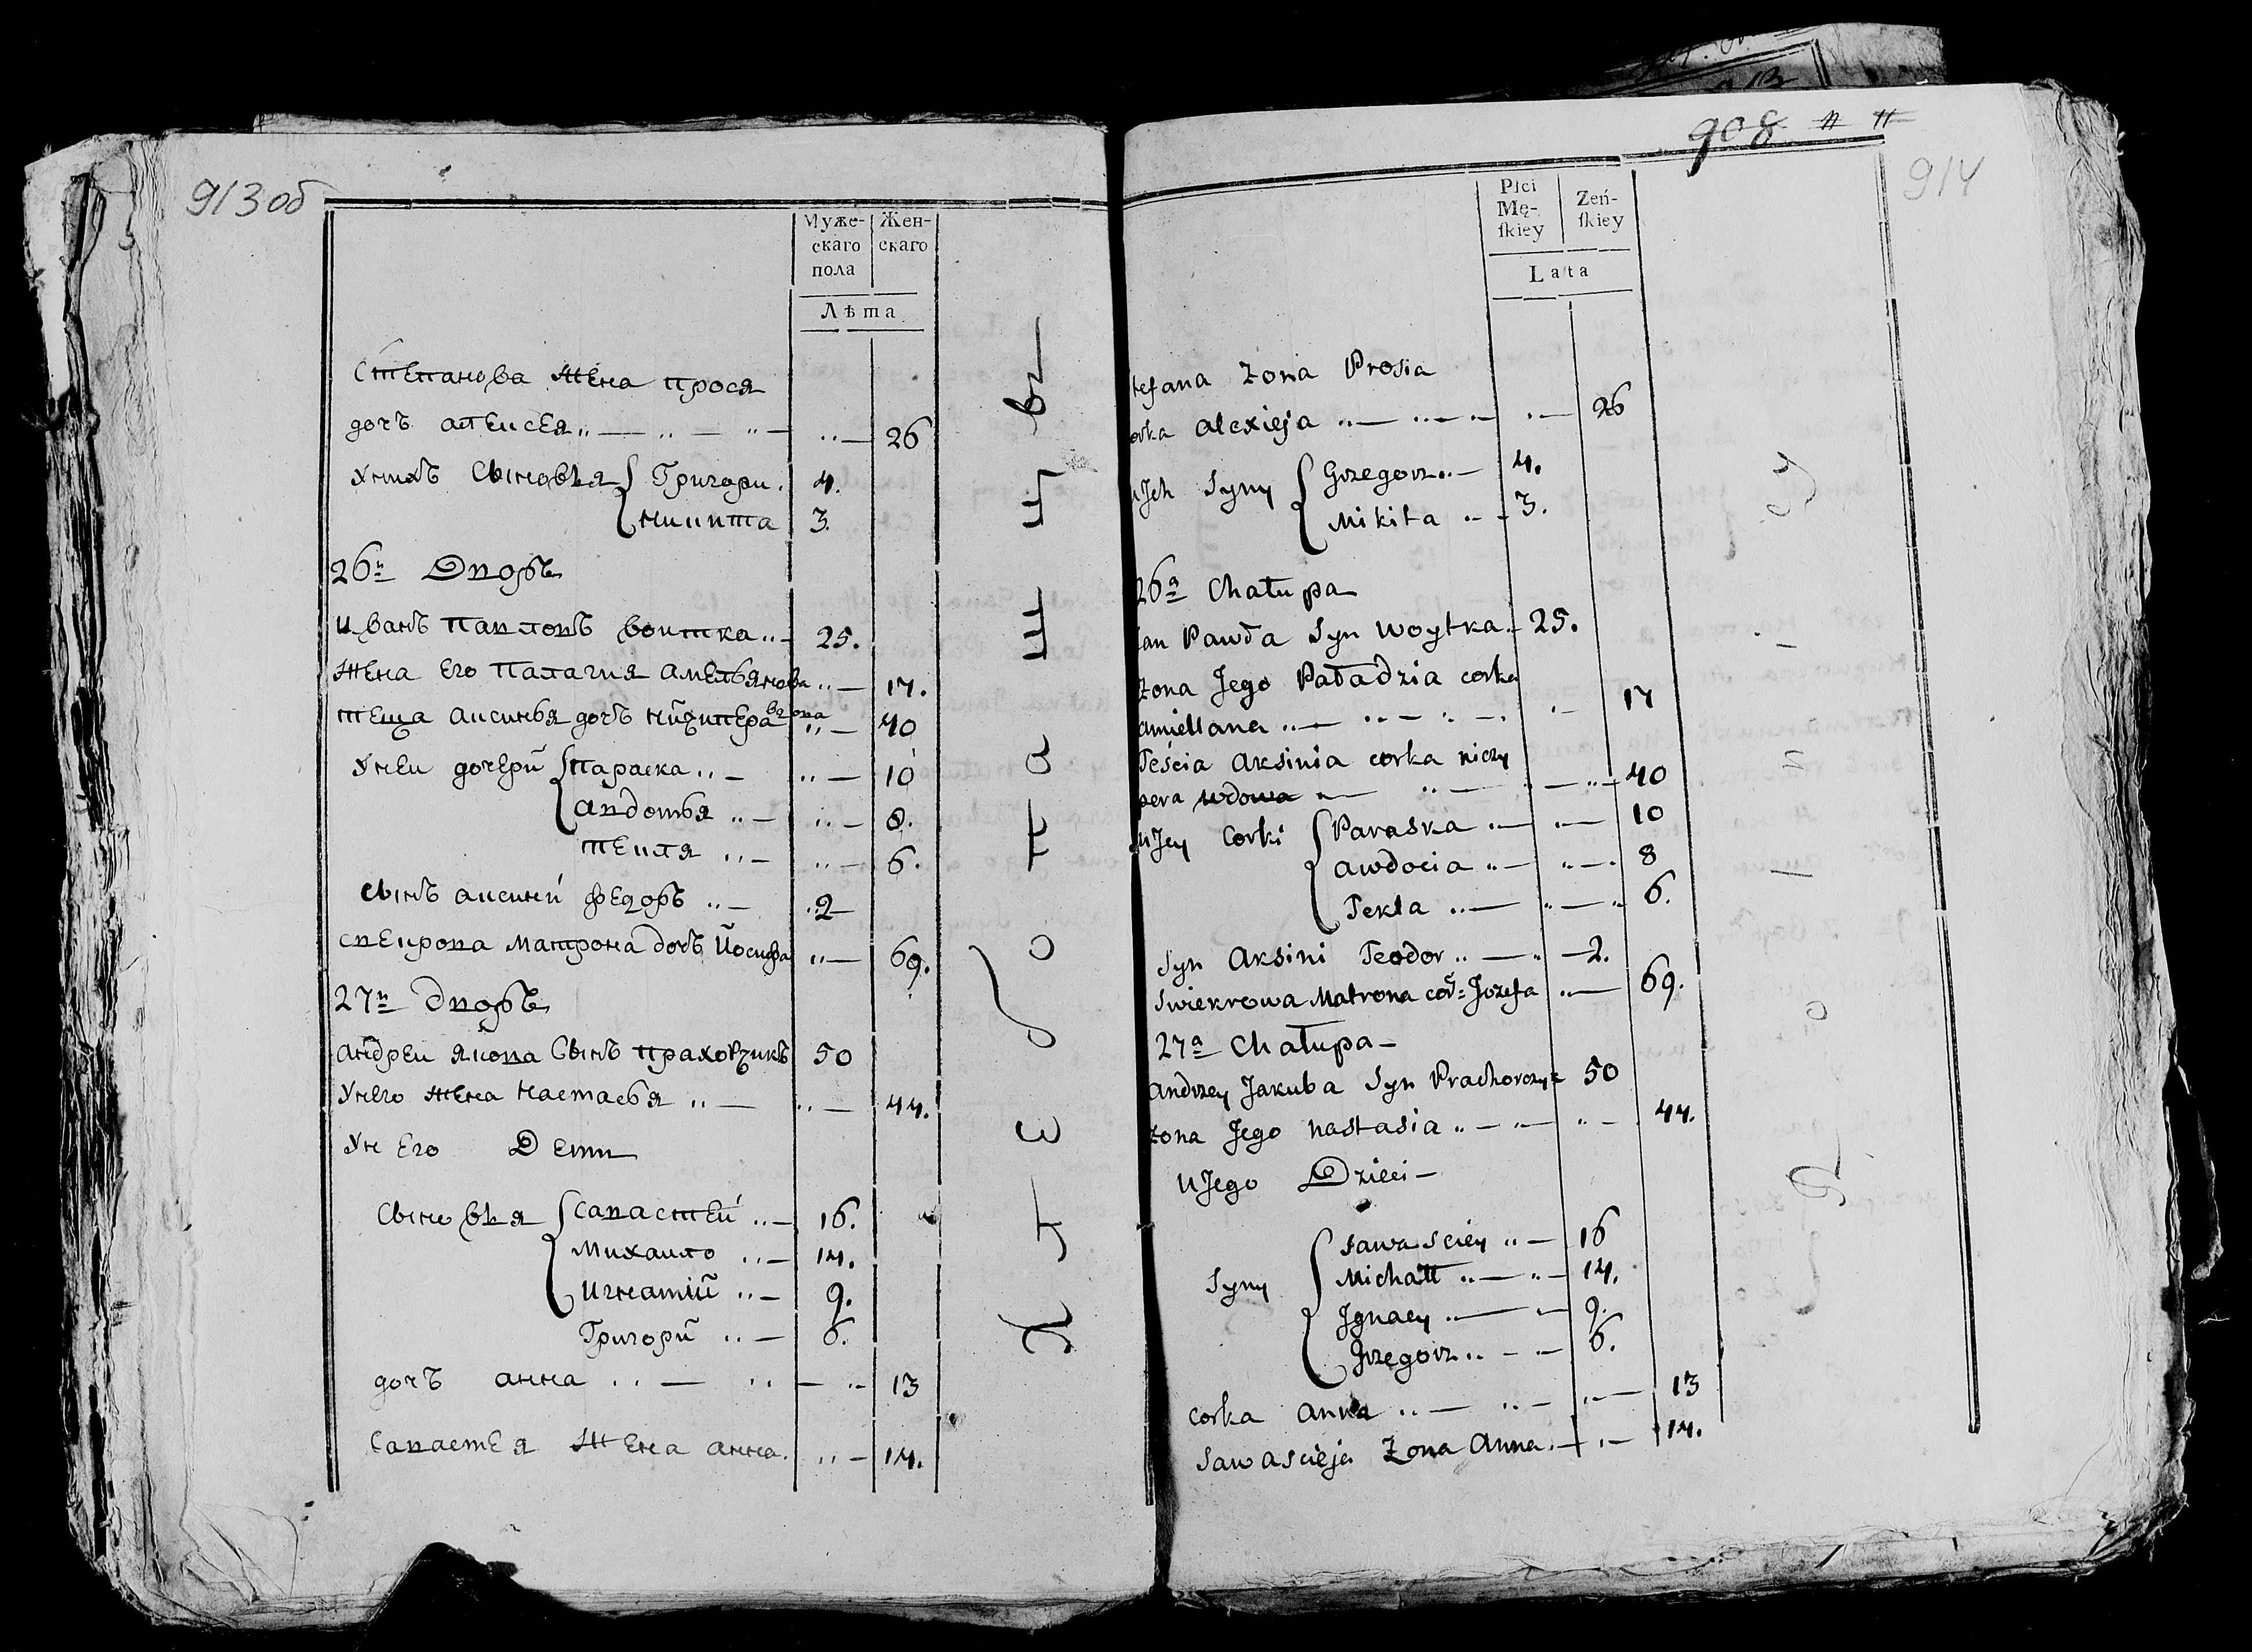 913 об
Муже-
скаго
пола
Жен-
скаго
Лѣта
Степанова жена прося
дочъ алексея 26
Унихъ Сыновья Григори. 4.
никита 3.
26й Дворъ
Иванъ павловъ воитка 25.
Жена Его палагия амельянова 17.
теща аксинья дочъ ничипера вдова 40
Унеи дочери параска 10
авдотья 8.
текля 6.
сынъ аксинӥ федоръ 2
свекрова матрона дочъ Йосифа 69.
27й дворъ
андреи якова Сынъ прахорчикъ 50
Унего жена настасья 44.
Ун Его Дети
Сыновья савастеӥ 16.
Михаило 14.
Игнатiй 9.
Григорӥ 6.
дочъ анна 13
Савастея Жена анна. 14.
908
914
Płci
Mę-
ſkiey
Zeń-
ſkiey
Lata
tefana zona Prosia
orka alexieja 26
uJch Syny Grzegorz 4.
Mikita 3.
26a Chałupa
Jan Pawła Syn woytka 25.
zona Jego Paładzia corka
amiellana 17
Teścia aksinia corka niczy
pera wdowa 40
uJey Corki Paraska 10
awdocia 8
Tekla 6.
Syn Aksini Teodor 2.
Swiekrowa Matrona cor: Jozefa 69.
27a Chałupa
andrzey Jakuba Syn Prachorczyk 50
zona Jego nastasia 44.
uJego Dzieci
Syny sawasciey 16
Michałł 14.
Jgnacy 9.
Grzegorz 6.
corka anna 13
Sawascieja Zona Anna 14.